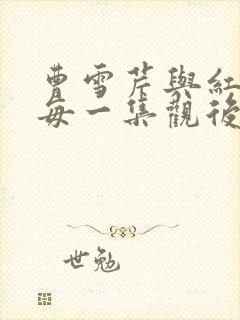 曹雪芹與紅
每一集觀後
世勉